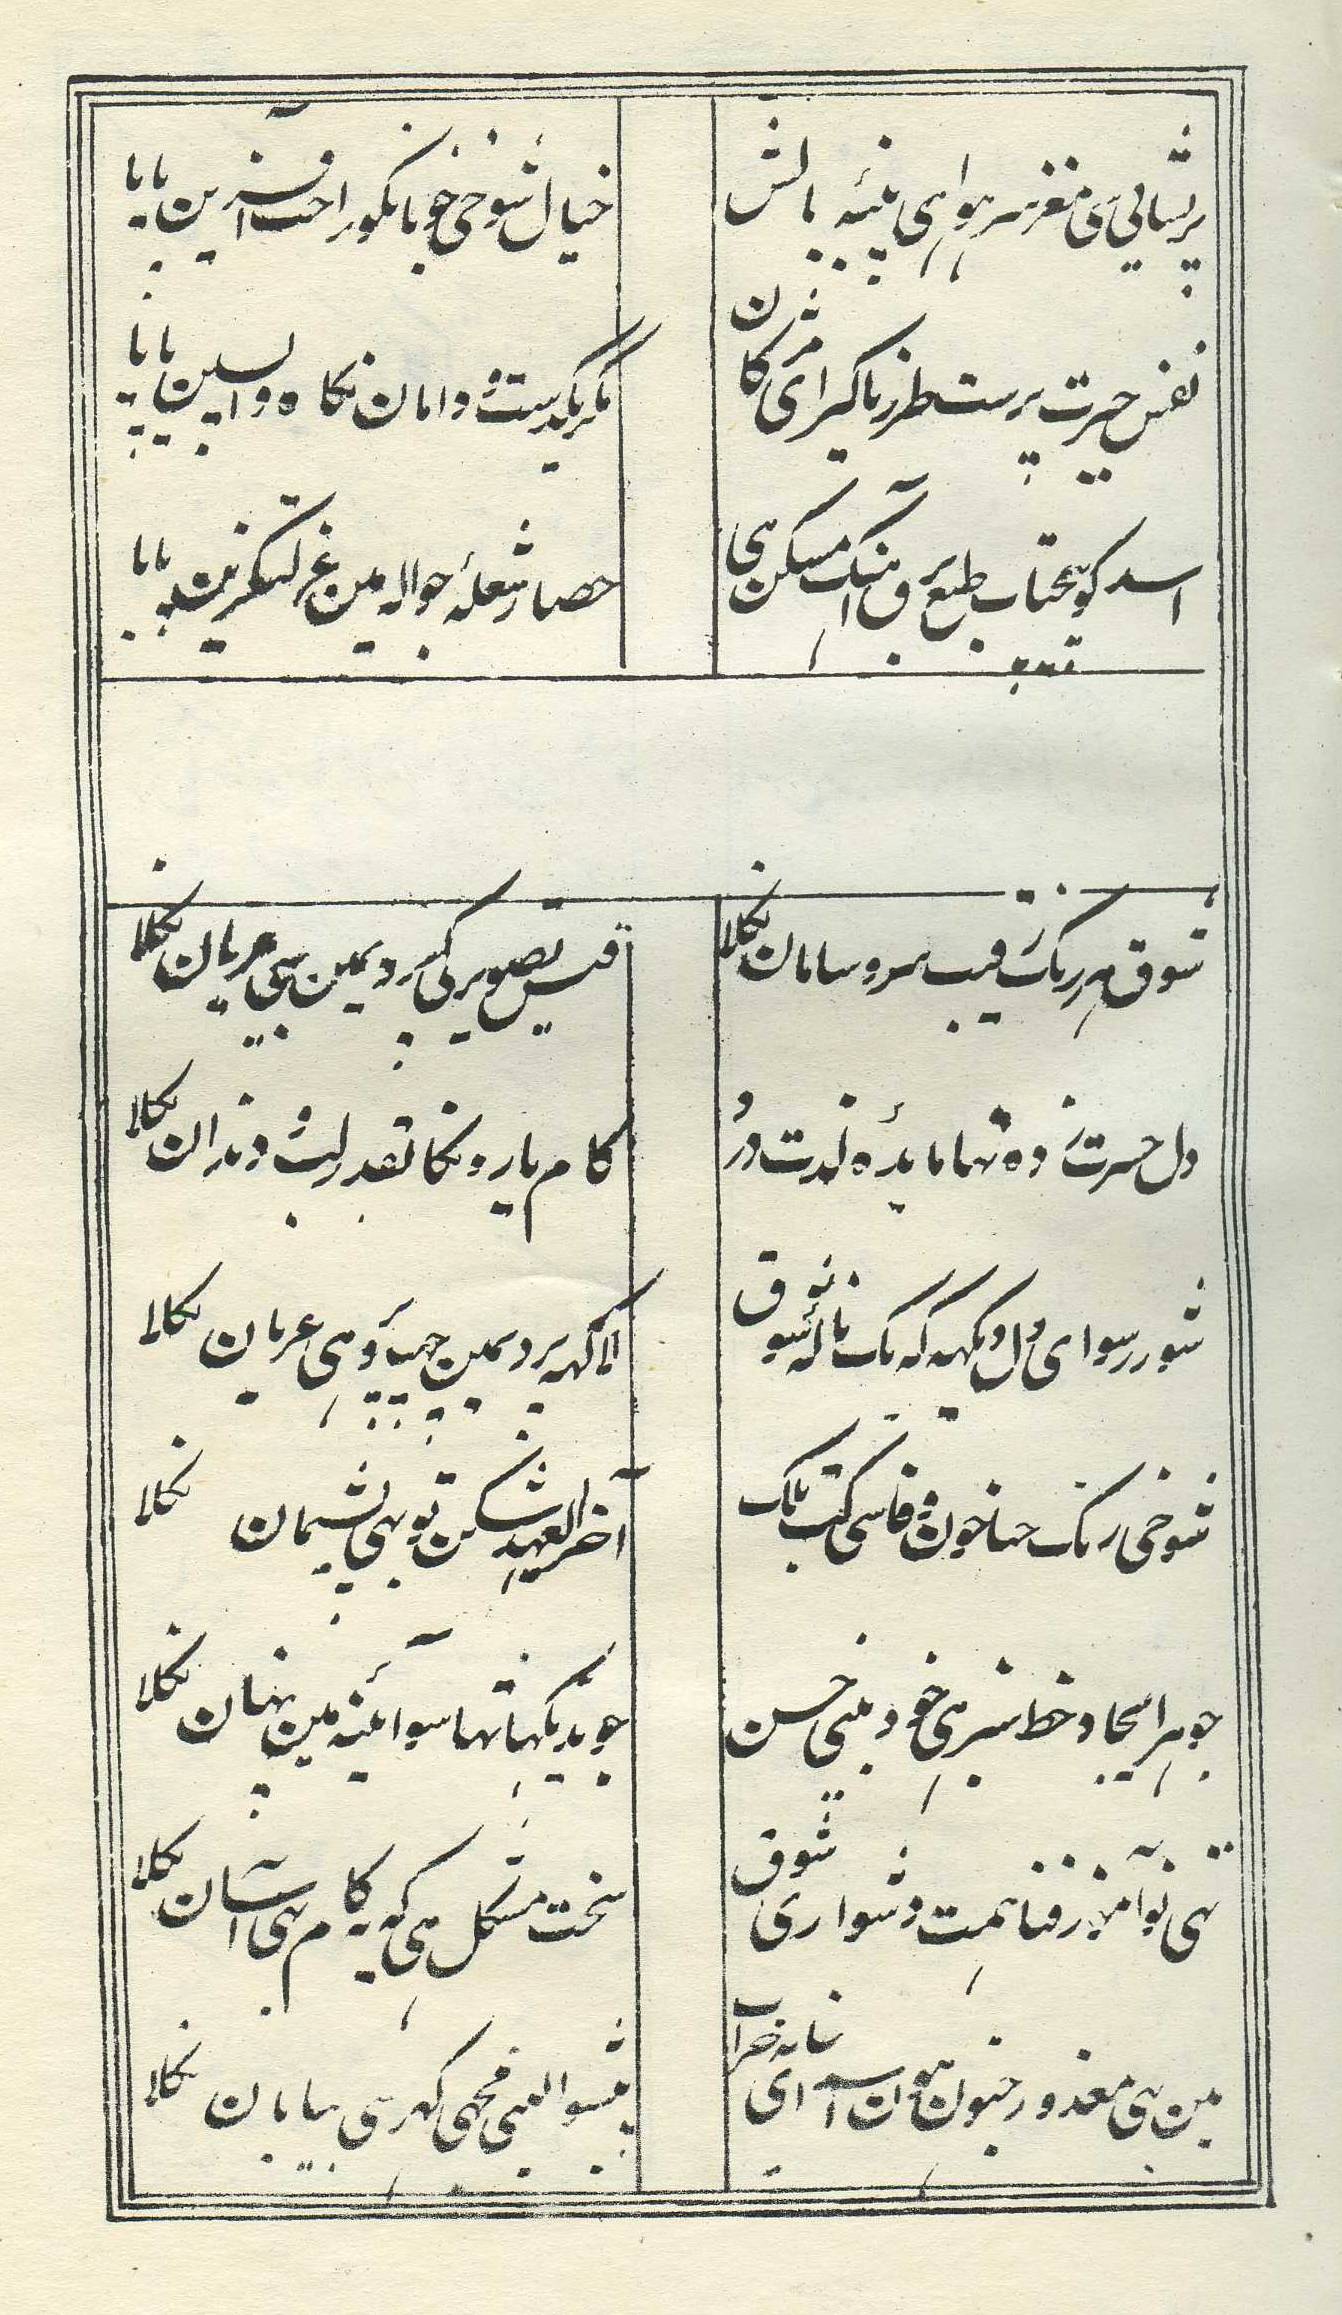 پریشانی سی مغز سر ہوا ہی پنبۂ بالش خیال شوخی خوبانکو راحت آفرین پایا
نفس حیرت پرست طرز ناگیرای مژگان مگر یکدست و دامان نگاہ واپسین پایا
اسد کو پیچتاب طبع برق آہنگ مسکن ہی حصار شعلۂ جوالہ مین عزلتگزین پایا
شوق ہر رنگ رقیب سر و سامان نکلا قیس تصویر کی پردیمین بہی عریان نکلا
دل حسرت زدہ تہا مایدہ لذت درد کام یارونکا بقدر لب و دندان نکلا
شور رسوای دل دیکہہ کہ یک نالۂ شوق لاکہہ پردیمین چہپا و ہی عریان نکلا
شوخی رنگ حنا خون وفا سی کب تک آخر ای عہد شکن تو بہی پشیمان نکلا
جوہر ایجاد خط سبز ہی خود بینی حسن جو ندیکہا تہا سو آئینہ مین پنہان نکلا
تہی نو آموز فنا ہمت دشواری شوق سخت مشکل ہی کہ یہ کام بہی آسان نکلا
مین بہی معذور جنون ہون اسد ای خانہ خراب پیشوا لینی مجہی گہر سی بیابان نکلا